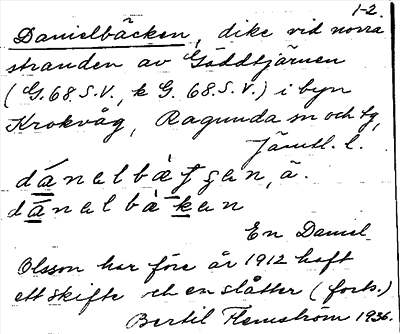 1-2.
Danielbäcken, dike vid norra
stranden av Gäddtjärnen
(G. 68. S.V., k G. 68. S.V.) i byn
Krokvåg, Ragunda sn och tg,
Jämtl. l.
En Daniel
Olsson har före år 1912 haft
ett skifte och en slåtter (forts.)
Bertil Flemström 1936.